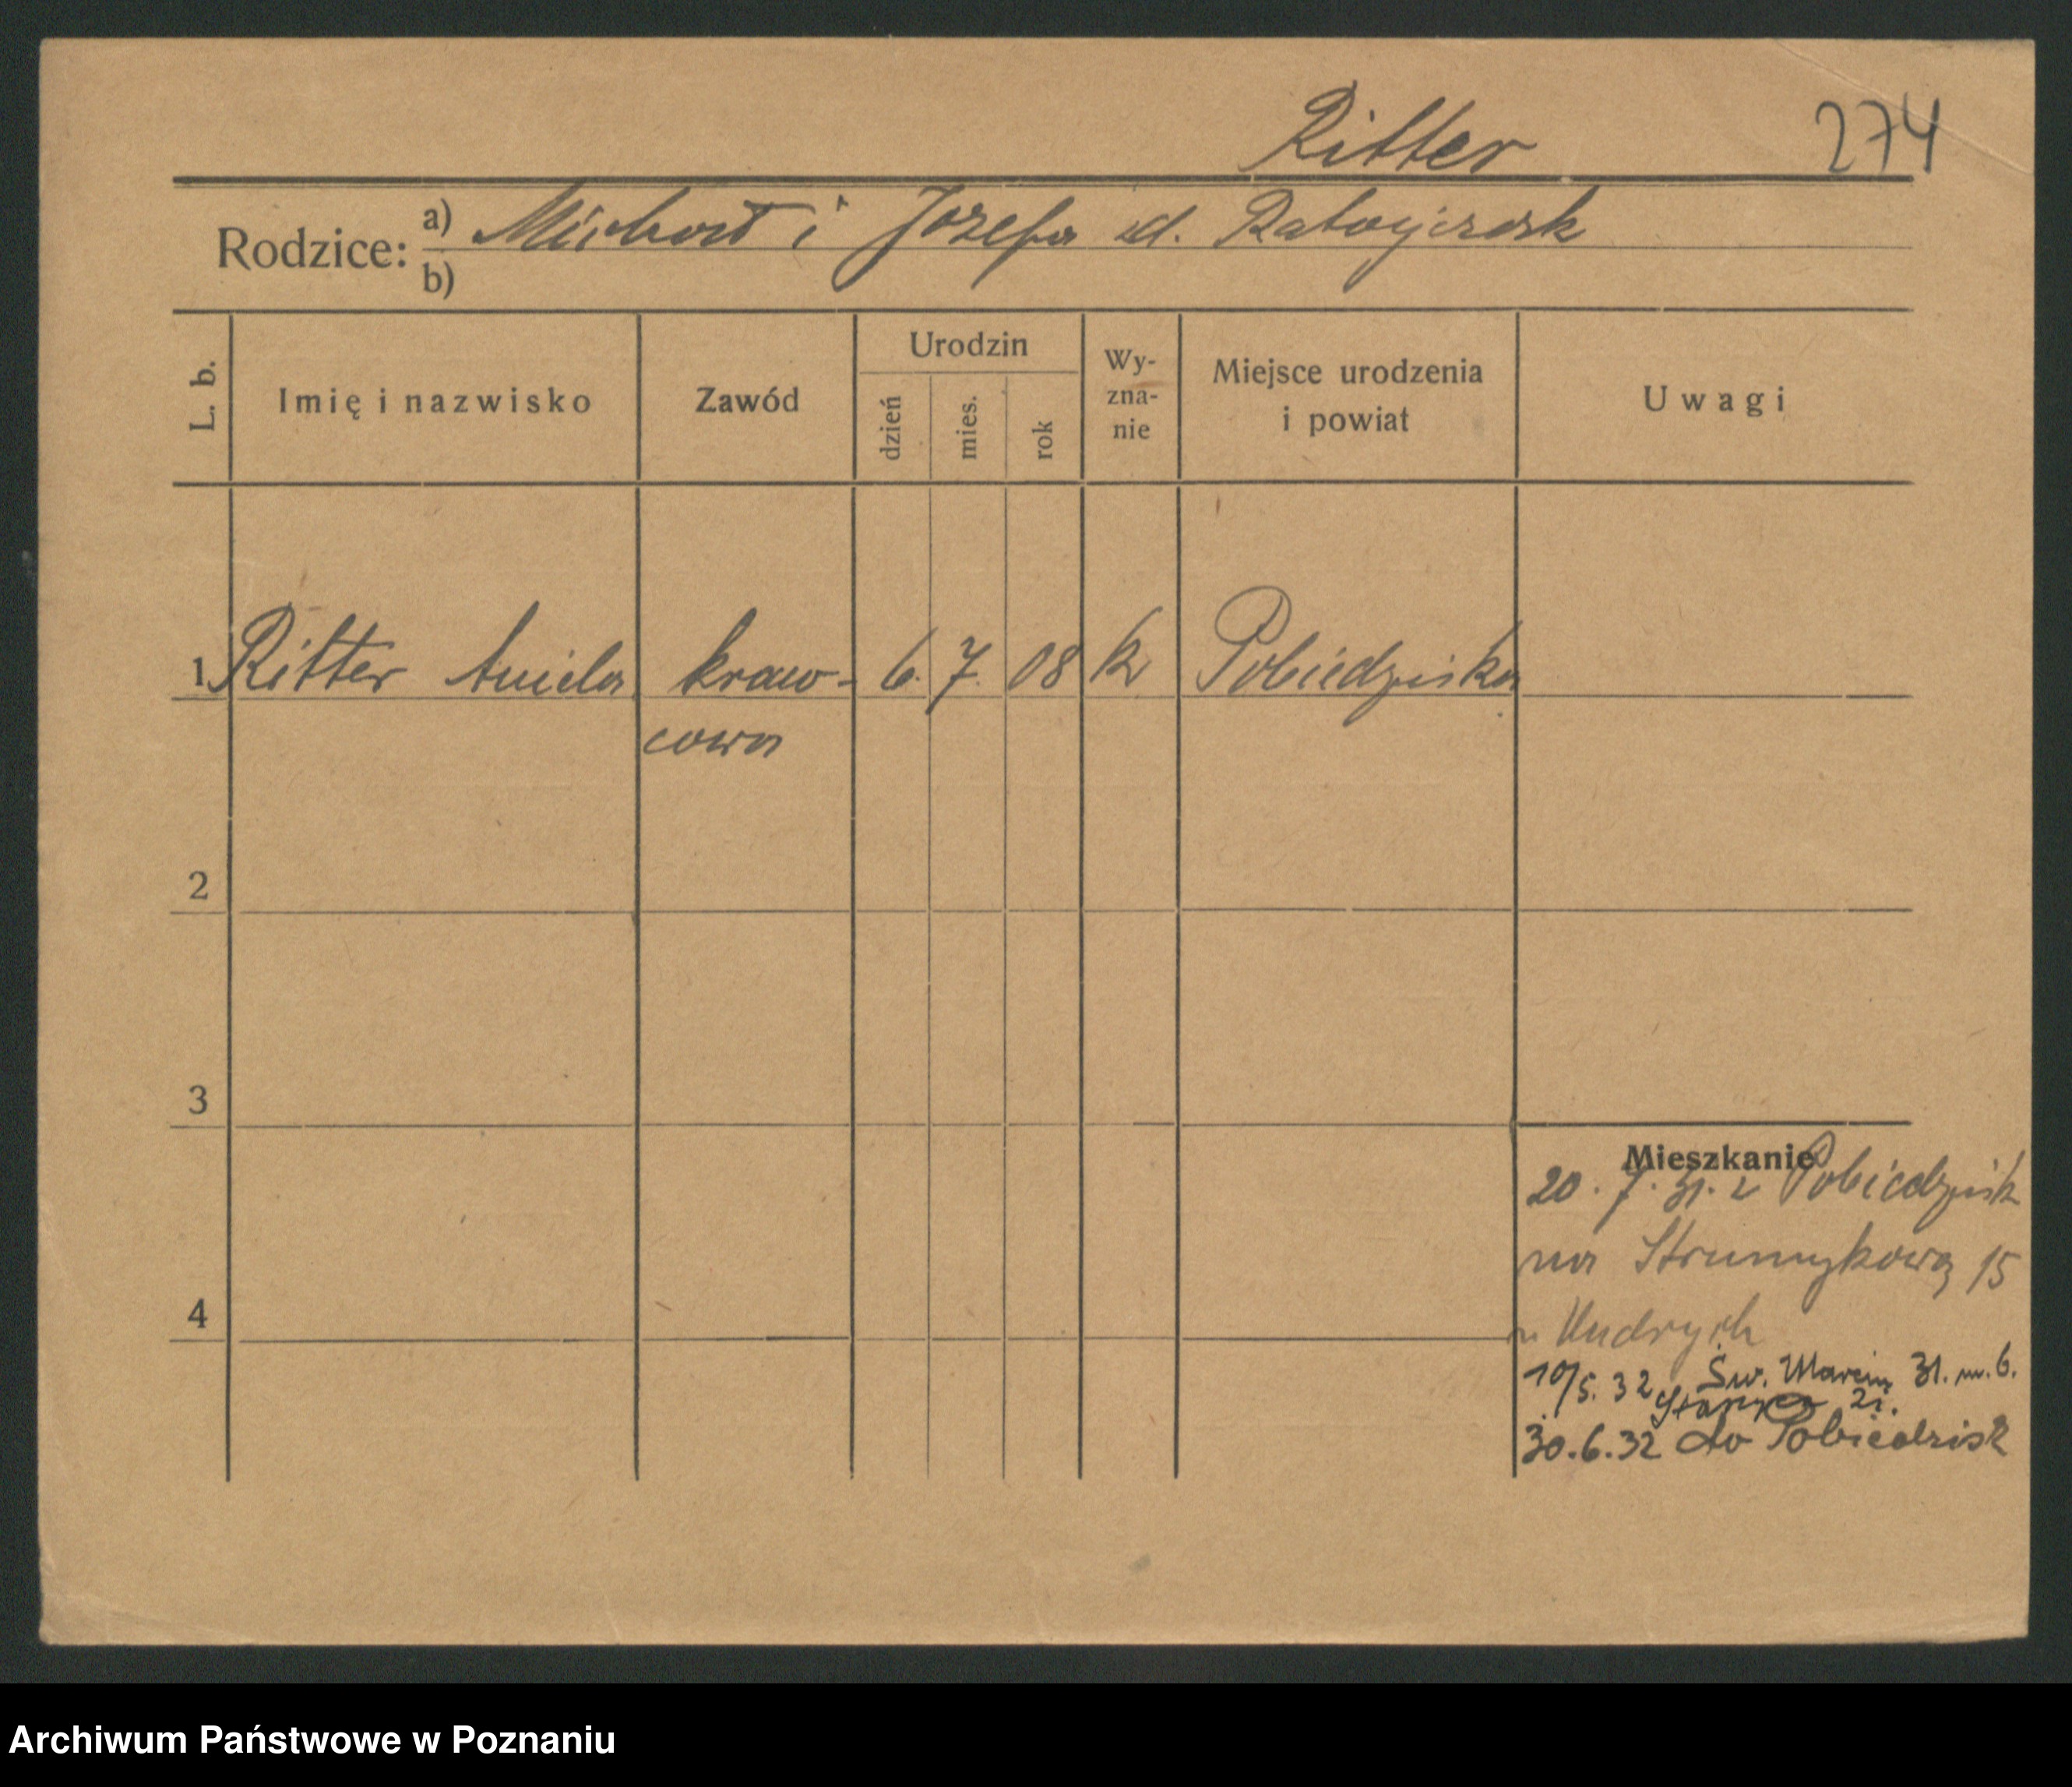 Ritter 274
Rodzice: a) Michał i Józefa zd. Ratajczak
b)
L. b. Imię i nazwisko Zawód Urodzin dzień mies. rok Wy-zna-nie Miejsce urodzenia i powiat Uwagi
1. Ritter Aniela kraw- 6. 7. 08 k Pobiedziska
cowa
2
3
Mieszkanie
20. 7. 31. z Pobiedzisk
na Strumykową 15
4
10/5. 32 Św. Marcin 31. m. 6.
30.6.32 do Pobiedzisk
Archiwum Państwowe w Poznaniu